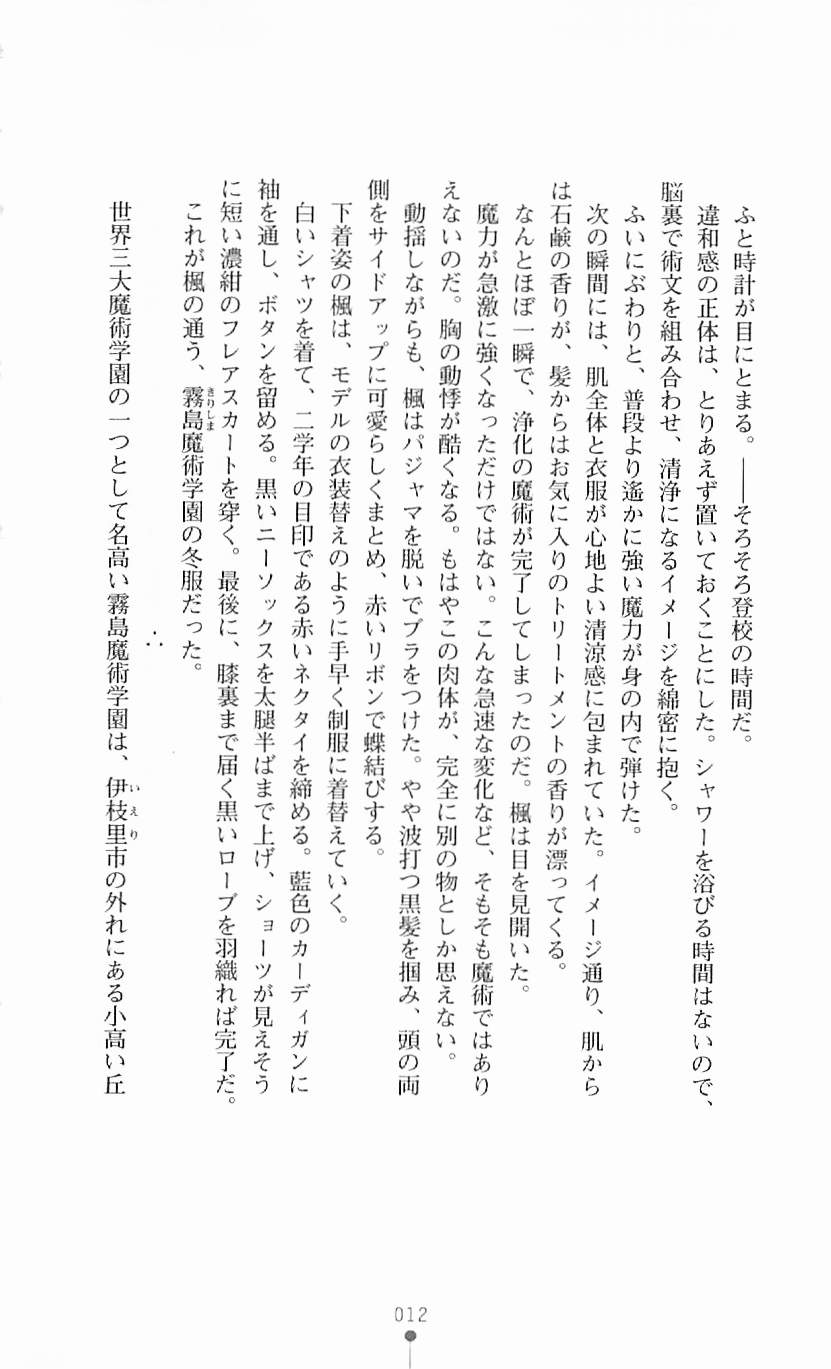 ふと時計が目にとまる。――そろそろ登校の時間だ。
違和感の正体は、とりあえず置いておくことにした。シャワーを浴びる時間はないので、
脳裏で術文を組み合わせ、清浄になるイメージを綿密に抱く。
ふいにぶわりと、普段より遙かに強い魔力が身の内で弾けた。
次の瞬間には、肌全体と衣服が心地よい清涼感に包まれていた。イメージ通り、肌から
は石鹸の香りが、髪からはお気に入りのトリートメントの香りが漂ってくる。
なんとほぼ一瞬で、浄化の魔術が完了してしまったのだ。楓は目を見開いた。
魔力が急激に強くなっただけではない。こんな急速な変化など、そもそも魔術ではあり
えないのだ。胸の動悸が酷くなる。もはやこの肉体が、完全に別の物としか思えない。
動揺しながらも、楓はパジャマを脱いでブラをつけた。やや波打つ黒髪を掴み、頭の両
側をサイドアップに可愛らしくまとめ、赤いリボンで蝶結びする。
下着姿の楓は、モデルの衣装替えのように手早く制服に着替えていく。
白いシャツを着て、二学年の目印である赤いネクタイを締める。藍色のカーディガンに
袖を通し、ボタンを留める。黒いニーソックスを太腿半ばまで上げ、ショーツが見えそう
に短い濃紺のフレアスカートを穿く。最後に、膝裏まで届く黒いローブを羽織れば完了だ。
これが楓の通う、霧島魔術学園の冬服だった。
きりしま
∴
世界三大魔術学園の一つとして名高い霧島魔術学園は、伊枝里市の外れにある小高い丘
いえり
012